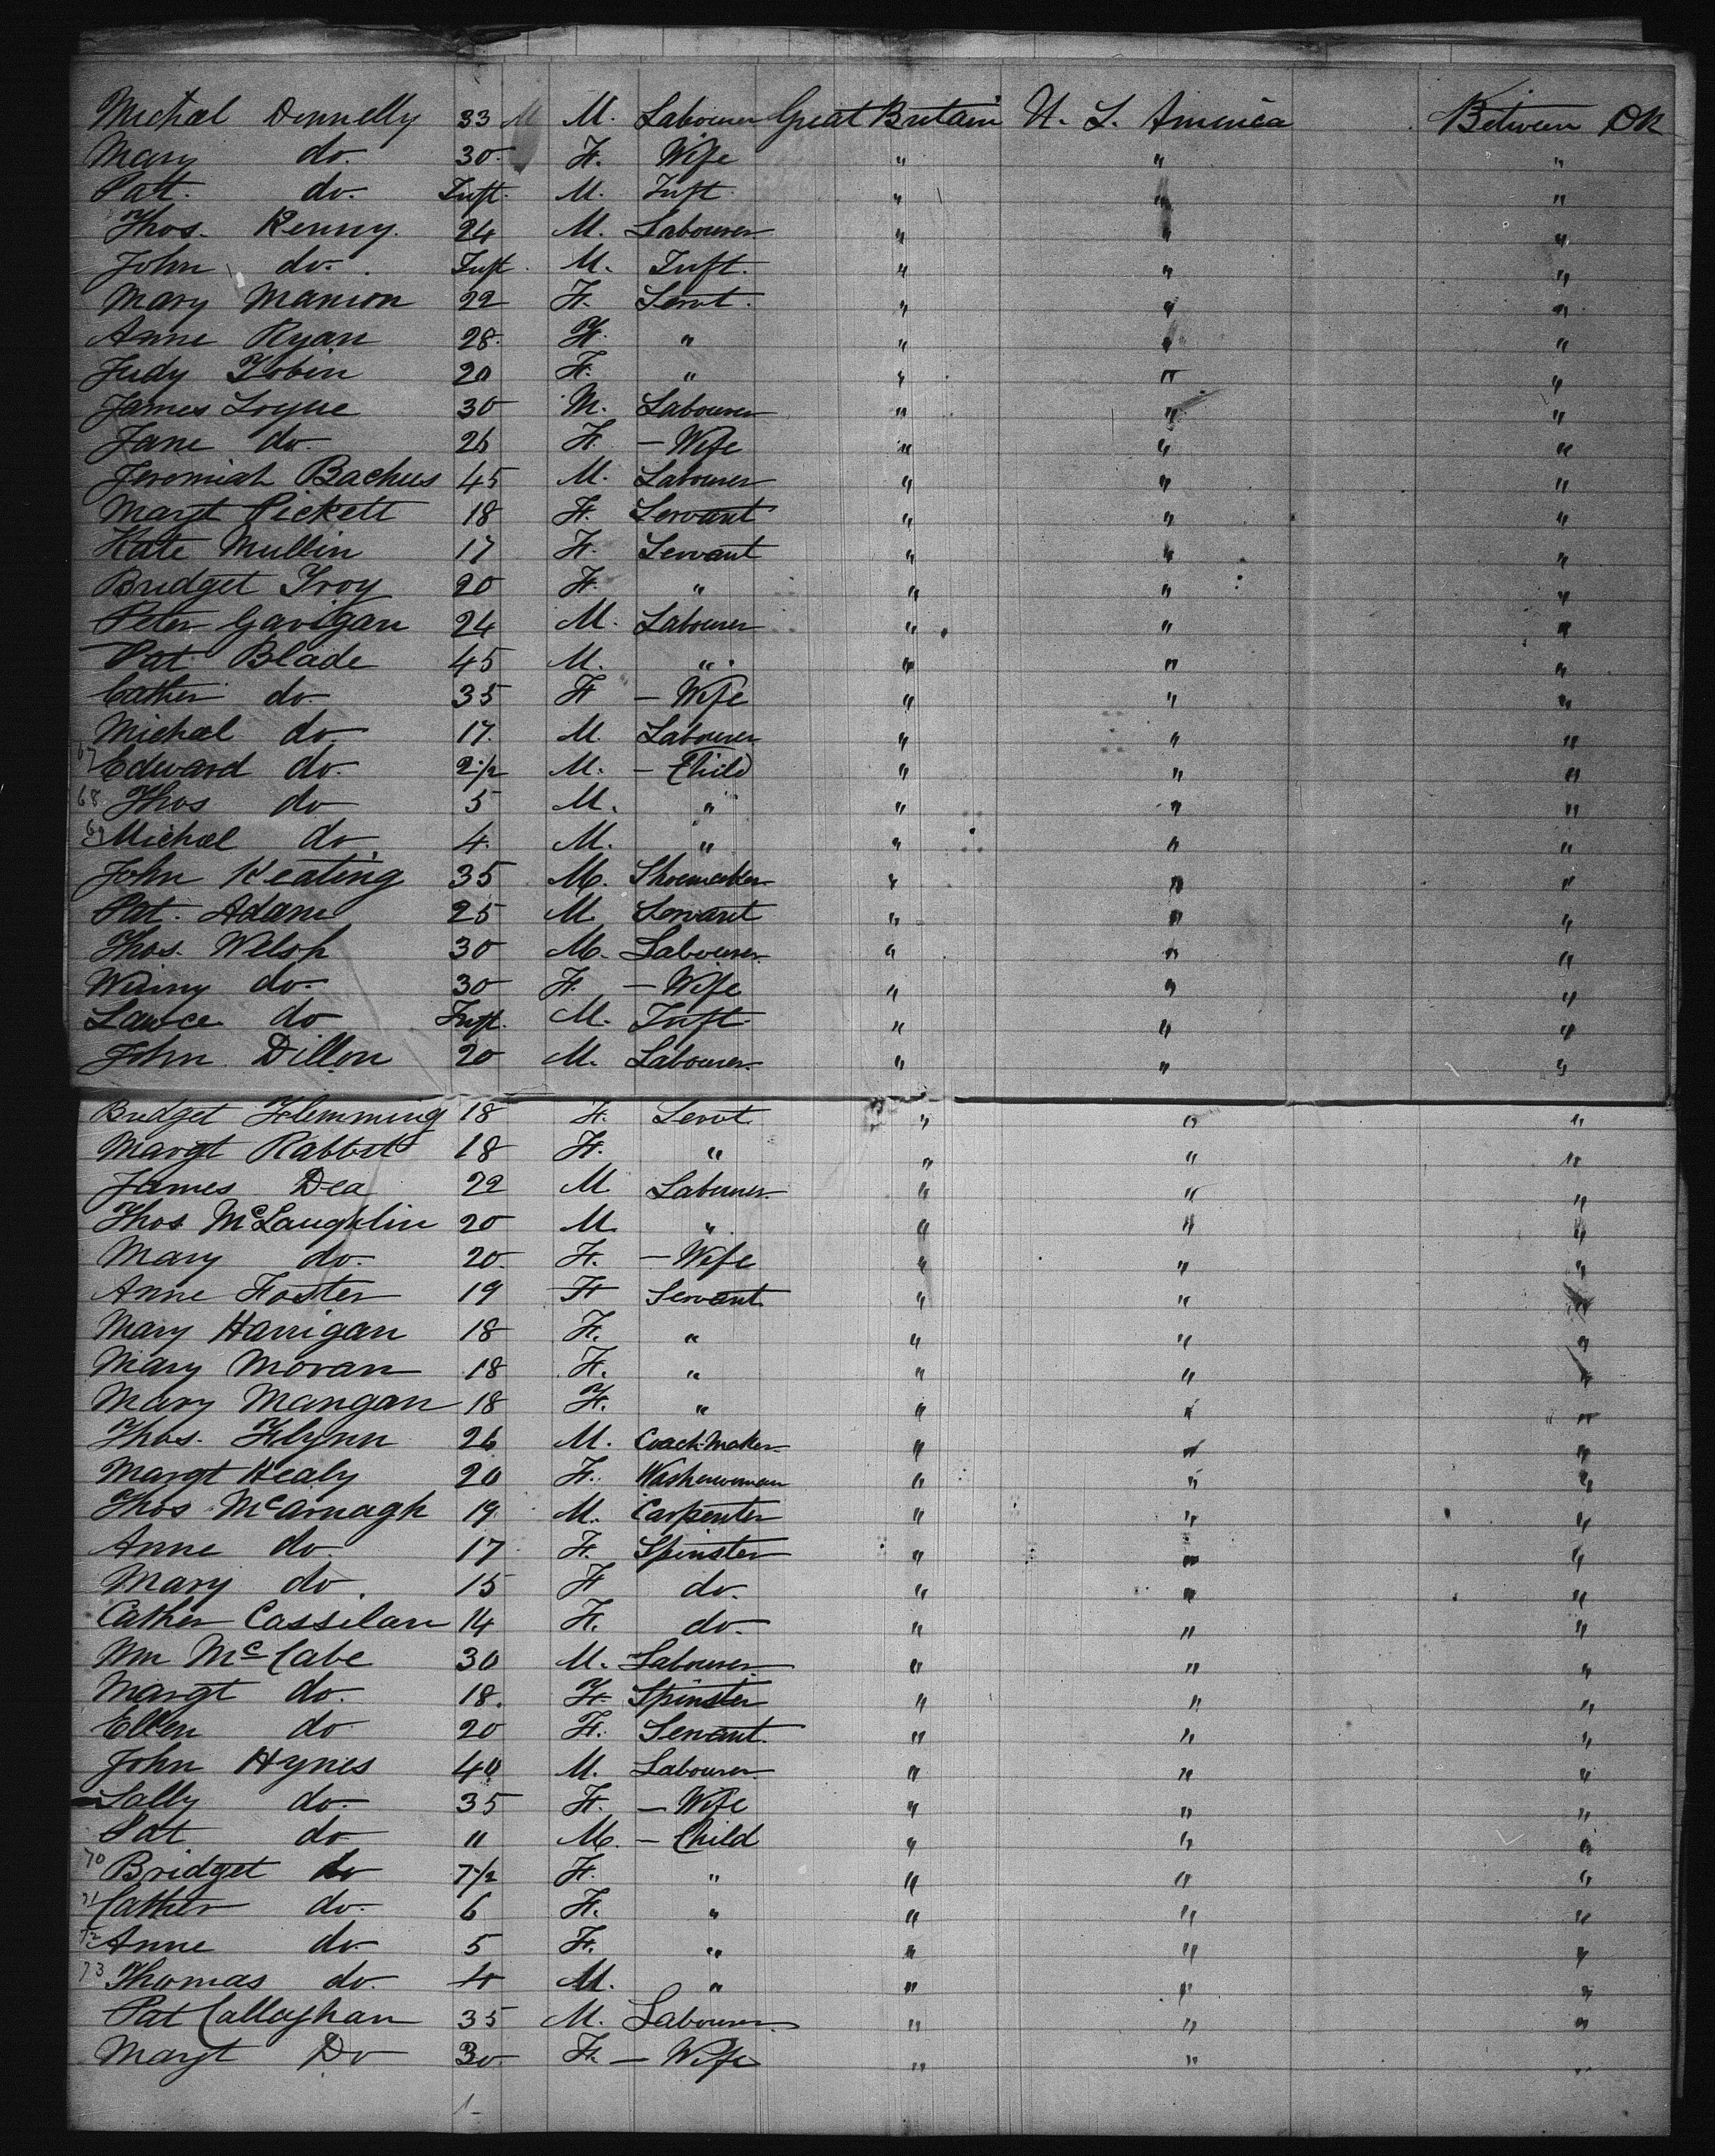 Michal Donnelly 33 M M. Labourer Great Britain U. S. America Between DK
Mary do. 30. F. Wife " " "
Pat. do. Inft. M. Inft. " " "
Thos. Kenny. 24 M. Labourer " " "
John do. Inft. M. Inft. " " "
Mary Manion 22 F. Servt. " " "
Anne Ryan 28. F. " " " "
Judy Tobin 20 F. " " " "
James Logue 30 M. Labourer " " "
Jane do. 26 F. — Wife " " "
Jeremiah Bachus 45 M. Labourer " " "
Margt Pickett 18 F. Servant " " "
Kate Mullin 17 F. Servant " " "
Bridget Troy 20 F. " " " "
Peter Gavigan 24 M. Labourer " " "
Pat Blade 45 M. " " " "
Cather do. 35 F — Wife " " "
Michal do 17. M. Labourer " " "
67 Edward do. 2½ M. — Child " " "
68 Thos do 5 M. " " " "
69 Michal do 4. M. " " " "
John Keating 35 M. Shoemaker " " "
Pat. Adam 25 M. Servant " " "
Thos. Welsh 30 M. Labourer " " "
Winny do. 30 F. — Wife " " "
Lawce do Inft. M. Inft. " " "
John Dillon 20 M. Labourer " " "
Bridget Flemming 18 F. Servt. " " "
Margt Rabbitt 18 F. " " " "
James Dea 22 M Labourer " " "
Thos McLaughlin 20 M. " " " "
Mary do. 20. F. — Wife " " "
Anne Foster 19 F Servant " " "
Mary Harrigan 18 F. " " " "
Mary Moran 18 F. " " " "
Mary Mangan 18 F. " " " "
Thos. Flynn 26 M. Coach-Maker " " "
Margt Healy 20 F. Washerwoman " " "
Thos McArnagh 19 M. Carpenter " " "
Anne do. 17 F. Spinster " " "
Mary do. 15 F do. " " "
Cather Cassilan 14 F. do. " " "
Wm McCabe 30 M. Labourer " " "
Margt do. 18. F. Spinster " " "
Ellen do 20 F. Servant. " " "
John Hynes 40 M. Labourer " " "
Sally do. 35 F. — Wife " " "
Pat do " M. — Child " " "
70 Bridget do 7½ F. " " " "
71 Cather do. 6 F. " " " "
72 Anne do 5 F. " " " "
73 Thomas do. M. " " " "
Pat Callaghan 35 M. Labourer " " "
Margt Do 30 F. — Wife " " "